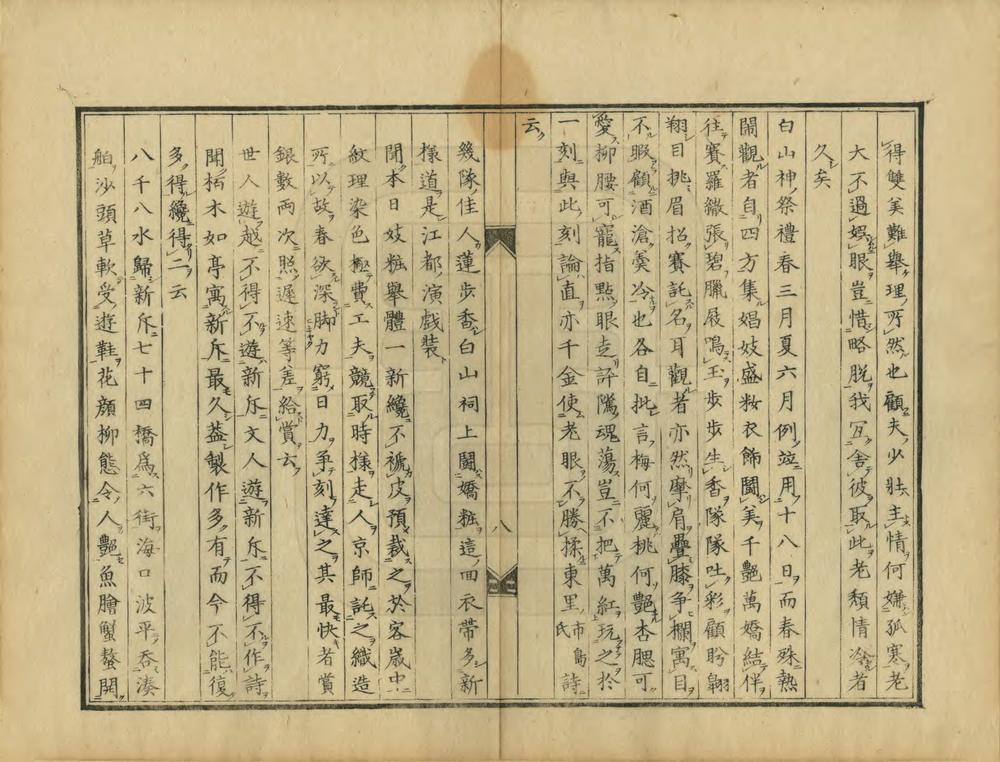 得雙美難舉理所然也顧夫少壯主情何嫌孤寒老
大不過娯眼豈惜略脱我冝舍彼取此老頽情冷者
久矣
白山神祭禮春三月夏六月例竝用十八日而春殊熱
鬧觀者自四方集娼妓盛粧衣飾鬪美千艶萬嬌結伴
往賽羅繖張碧臘屐鳴玉歩歩生香隊隊吐彩顧盻翺
翔目挑眉招賽託名耳觀者亦然摩肩疊膝争欄寓目
不暇顧酒滄羮冷也各自批言梅何麗桃何艶杏腮可
愛柳腰可寵指點眼走評隲魂蕩豈不把萬紅玩之於
一刻與此刻論直亦千金使老眼不勝揉東里市島氏詩
云
八
幾隊佳人蓮歩香白山祠上鬪嬌粧這囬衣帶多新
樣道是江都演戲裝
聞本日妓粧舉體一新纔不褫皮預裁之於客歳中
紋理染色極費工夫競取時樣走人京師託之織造
所以故春欲深脚力窮日力争刻達之其最快者賞
銀數兩次照遲速等差給賞云
世人遊越不得不遊新斥文人遊新斥不得不作詩
聞柳木如亭寓新斥最久葢製作多有而今不能復
多得纔得二云
八千八水歸新斥七十四橋爲六街海口波平呑湊
舶沙頭草軟受遊鞋花顔柳態令人艶魚膾蟹螯開